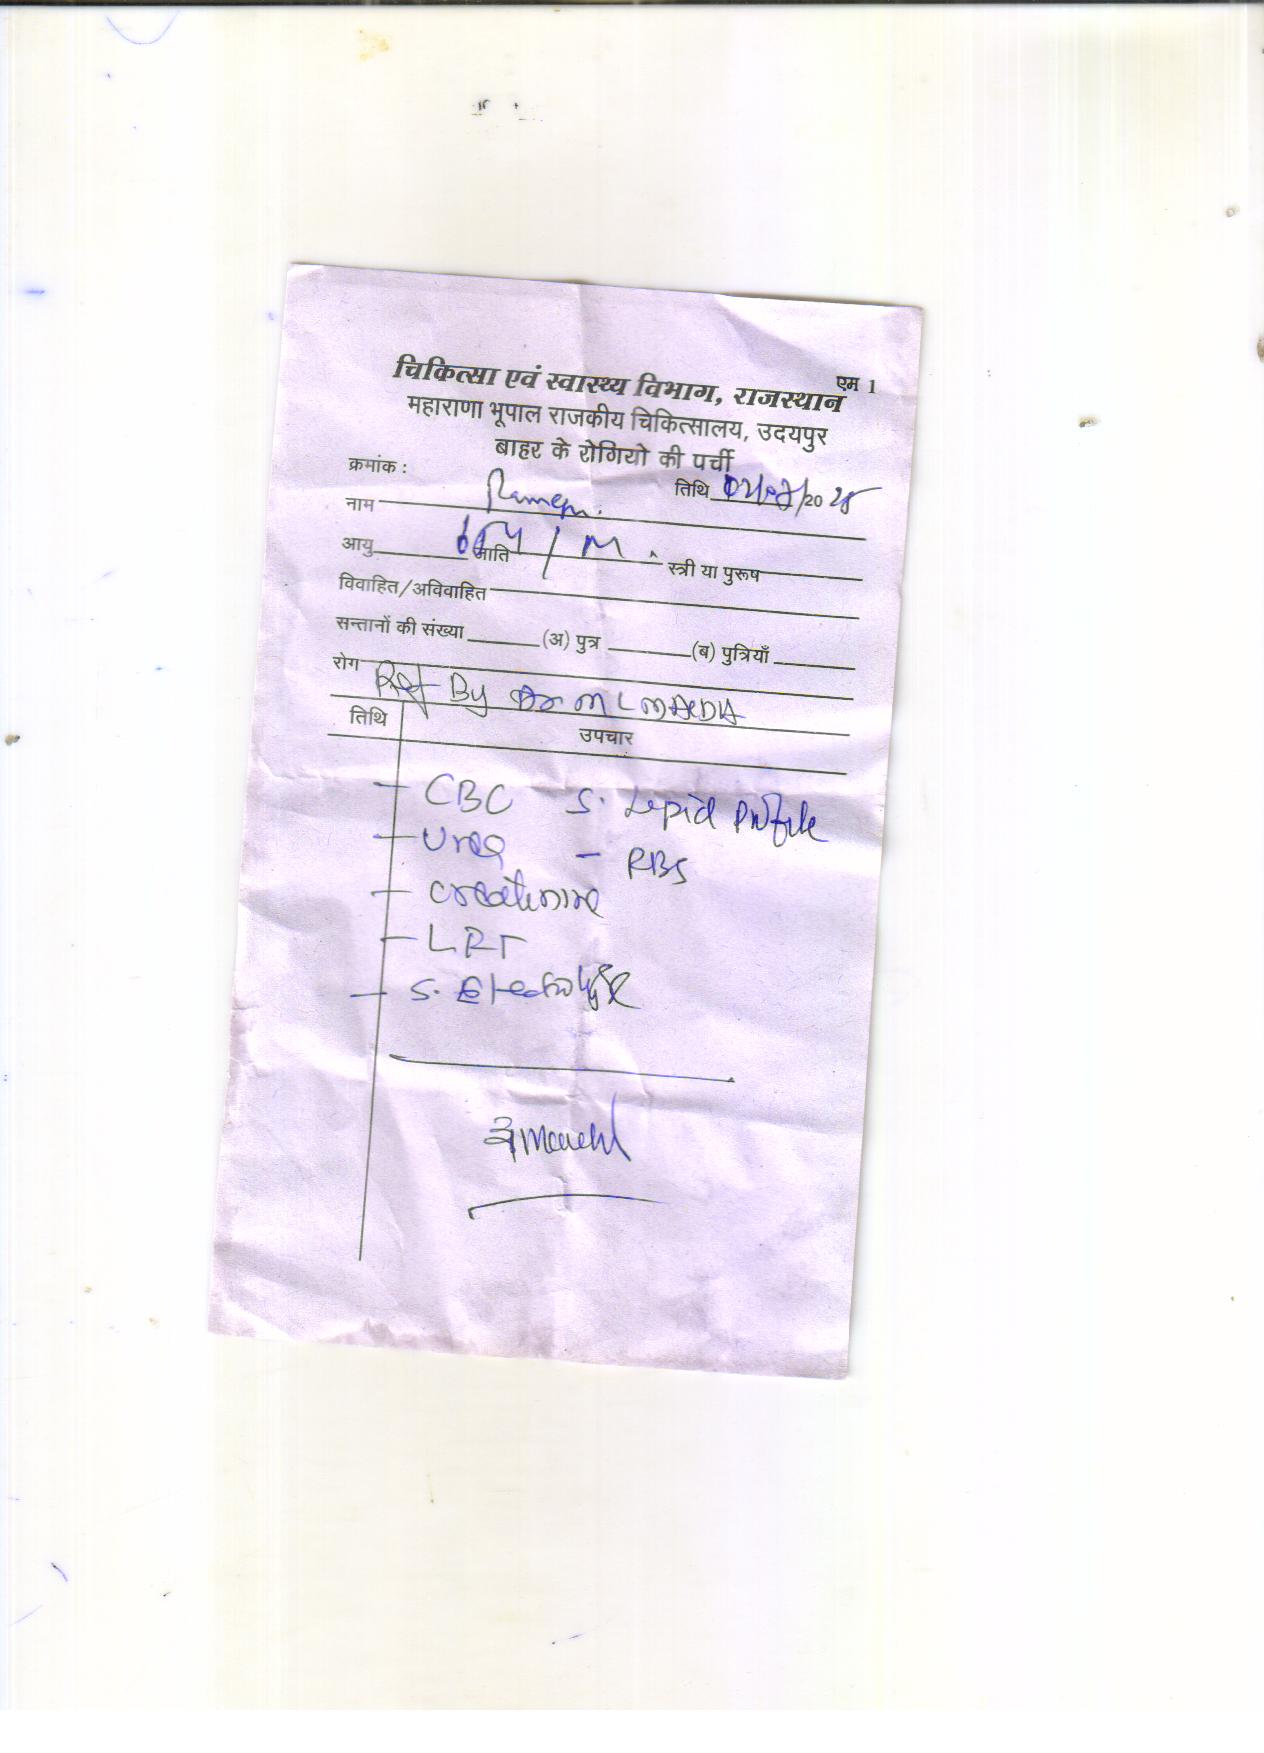 एम 1
चिकित्सा एवं स्वास्थ्य विभाग, राजस्थान
महाराणा भूपाल राजकीय चिकित्सालय, उदयपुर
बाहर के रोगियो की पर्ची
क्रमांक :
तिथि /20 25
नाम
आयु जाति / M. स्त्री या पुरूष
विवाहित/अविवाहित
सन्तानों की संख्या (अ) पुत्र (ब) पुत्रियाँ
रोग
Ref By Dr ML
तिथि उपचार
- CBC S. Lepid Profile
- Urea - RBS
- Creatinine
- LRT
- S. Electrolyte